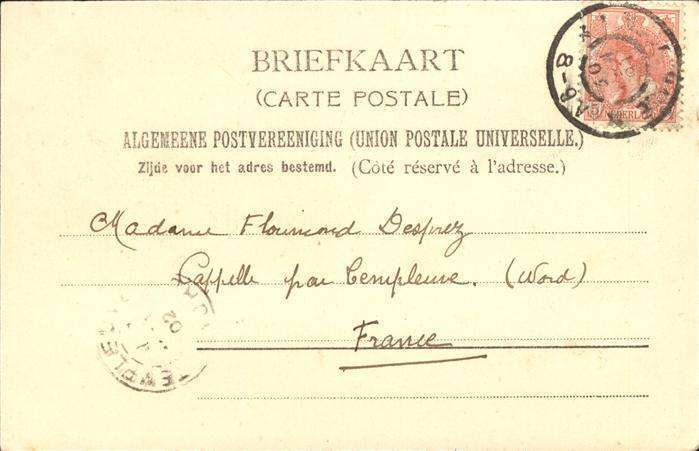 BRIEFKAART
(CARTE POSTALE)
ALGEMEENE POSTVEREENIGING (UNION POSTALE UNIVERSELLE.)
Zijde voor het adres bestemd. (Côté réservé à l'adresse.)
Madame Florimond Desprez
Cappelle par Templeuve. (Word)
France
NEDERLAND
TEMPLE
02